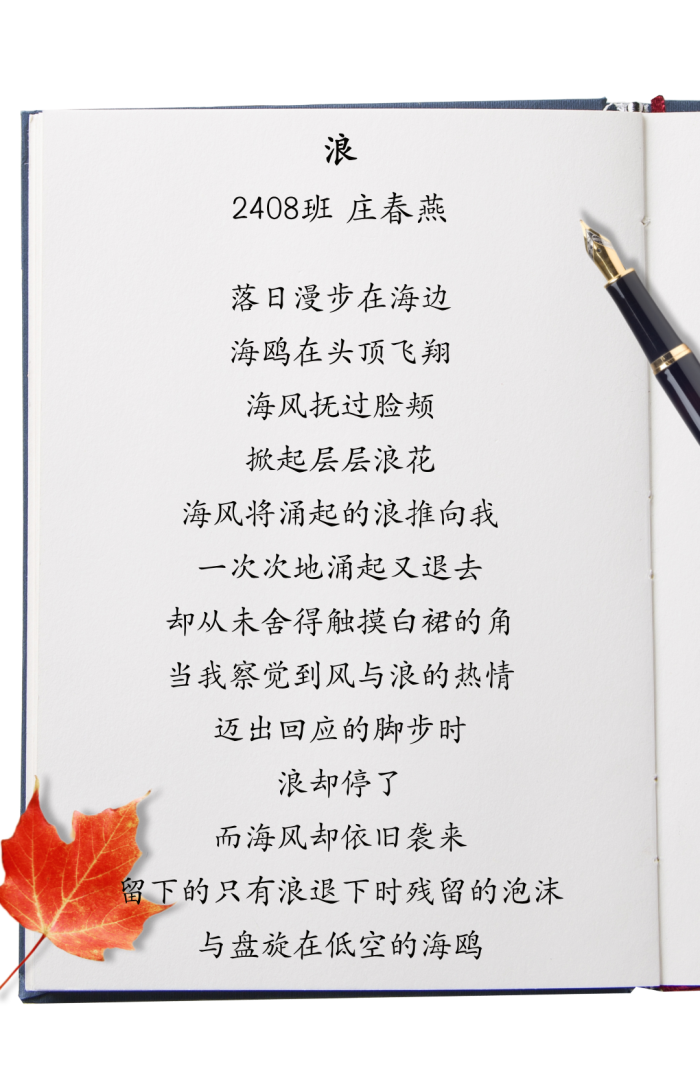 浪
2408班 庄春燕
落日漫步在海边
海鸥在头顶飞翔
海风抚过脸颊
掀起层层浪花
海风将涌起的浪推向我
一次次地涌起又退去
却从未舍得触摸白裙的角
当我察觉到风与浪的热情
迈出回应的脚步时
浪却停了
而海风却依旧袭来
留下的只有浪退下时残留的泡沫
与盘旋在低空的海鸥